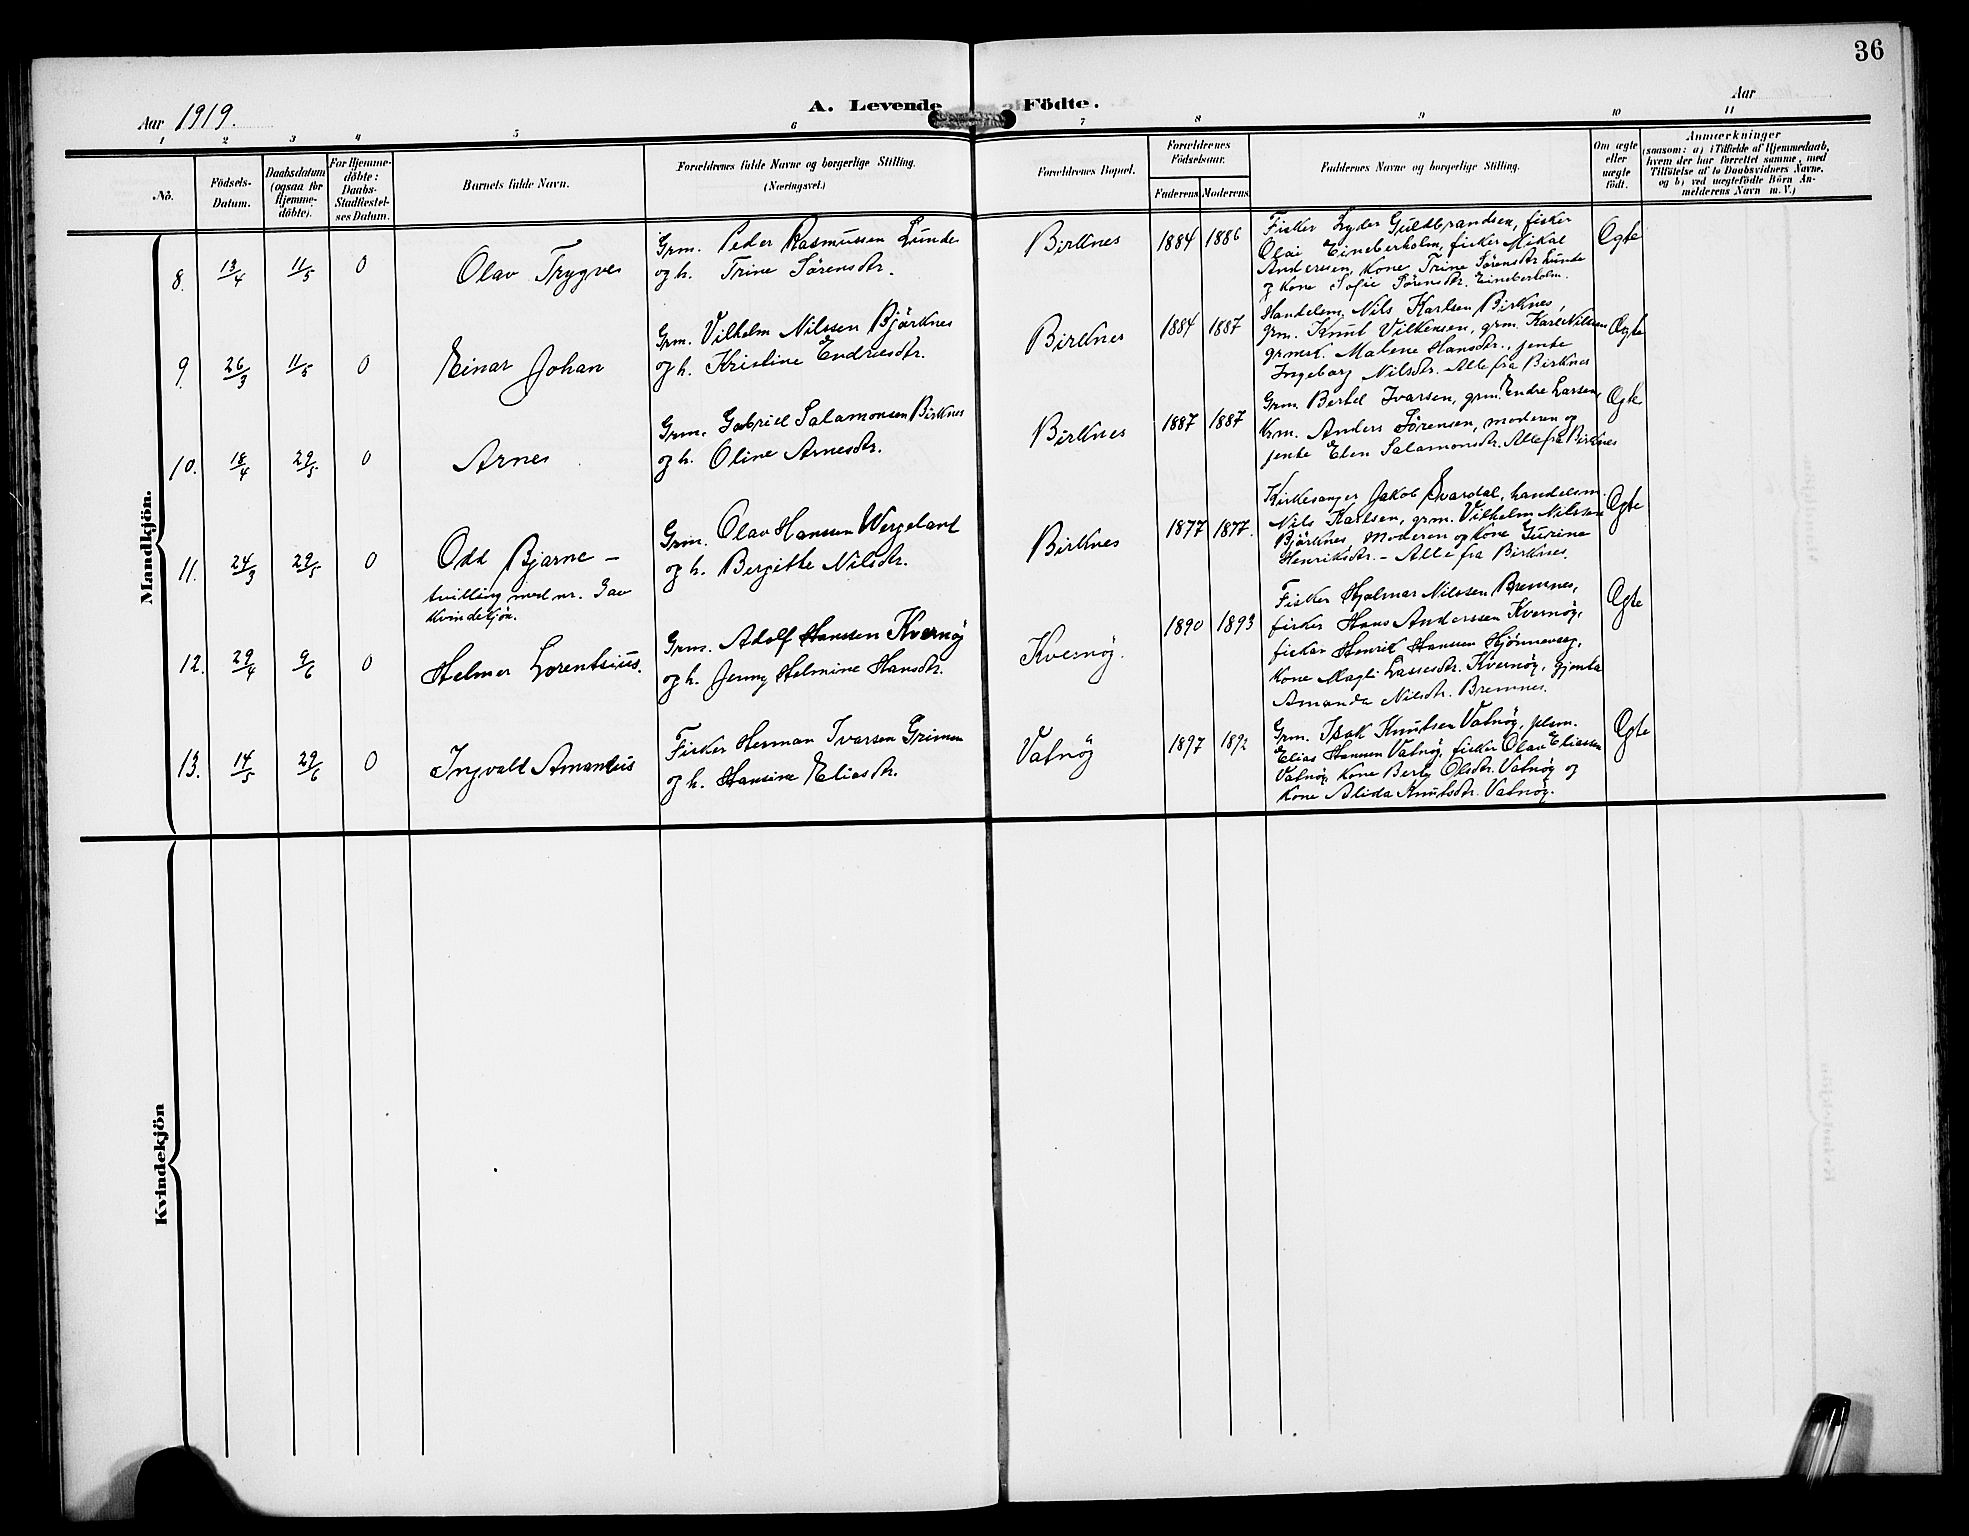 36
A. Levende Födte.
Aar 1919.
Aar
1 2 3 4 5 6 7 8 9 10 11
Nö.
Födsels-
Datum.
Daabsdatum
(ogsaa for
Hjemme-
döbte).
For Hjemme-
döbte:
Daabs-
Stadfæstel-
ses Datum.
Barnets fulde Navn.
Forældrenes fulde Navne og borgerlige Stilling.
(Næringsvei.)
Forældrenes Bopæl.
Forældrenes
Födselsaar.
Faderens
Moderens
Faddernes Navne og borgerlige Stilling.
Om ægte
eller
uægte
födt.
Anmærkninger
(saasom: a) i Tilfælde af Hjemmedaab,
hvem der har forrettet samme, med
Tilföielse af to Daabsvidners Navne,
og b) ved uægtefödte Börn An-
melderens Navn m. V.)
Mandkjön.
8. 13/4 11/5 0
Olav Trygve
Grm. Peder Rasmussen Lunde
og h. Trine Sörensdtr.
Birknes
1884 1886
Fisker Lyder Guldbrandsen, fisker
Olai Eineberholm, fisker Mikal
Anderssen, Kone Trine Sörensdtr Lunde
og Kone Sofie Sörensdtr. Eineberholm.
Ægte
9. 26/3 11/5 0
Einar Johan
Grm. Vilhelm Nilssen Björknes
og h. Kristine Endresdtr.
Birknes
1884 1887
Handelsm. Nils Karlsen Birknes,
grm. Knut Vilkensen, grm. Karl Nilssen
grmst. Malene Hansdtr., jente
Ingeborg Nilsdtr. Alle fra Birknes
Ægte
10. 18/4 29/5 0
Arne
Grm. Gabriel Salamonsen Birknes
og h. Oline Arnesdtr.
Birknes
1887 1887
Grm. Bertel Ivarsen, grm. Endre Larsen
Krm. Anders Sörensen, moderen og
jente Elen Salamonsdtr. Alle fra Birknes
Ægte
11. 24/3 29/5 0
Odd Bjarne –
tvilling med nr. 3 av
kvindekjön.
Grm. Olav Hansen Wergeland
og h. Bergitte Nilsdtr.
Birknes
1877 1877.
Kirkesanger Jakob Svardal, handelsm.
Nils Karlsen, grm. Vilhelm Nilssen
Björknes, Moderen og Kone Gurine
Henriksdtr. – Alle fra Birknes.
Ægte
12. 29/4 9/6 0
Helmer Lorentsius.
Grm. Adolf Hanssen Kvernöy
og h. Jenny Helmine Hansdtr.
Kvernöy.
1890 1893
Fisker Hjalmar Nilssen Bremnes,
fisker Hans Anderssen Kvernöy,
fisker Henrik Hanssen Hjönnevaag,
Kone Magli Lassesdtr. Kvernöy, gjenta
Amanda Nilsdtr. Bremnes.
Ægte
13. 14/5 29/6 0
Ingvald Amandus
Fisker Herman Ivarsen Grimen
og h. Hansine Eliasdtr.
Vatnöy
1897 1892
Grm. Isak Knutsen Vatnöy, plsm.
Elias Hansen Vatnöy, fisker Olav Eliassen
Vatnöy, Kone Berta Olsdtr. Vatnöy og
Kone Alida Knutsdtr. Vatnöy.
Ægte
Kvindekjön